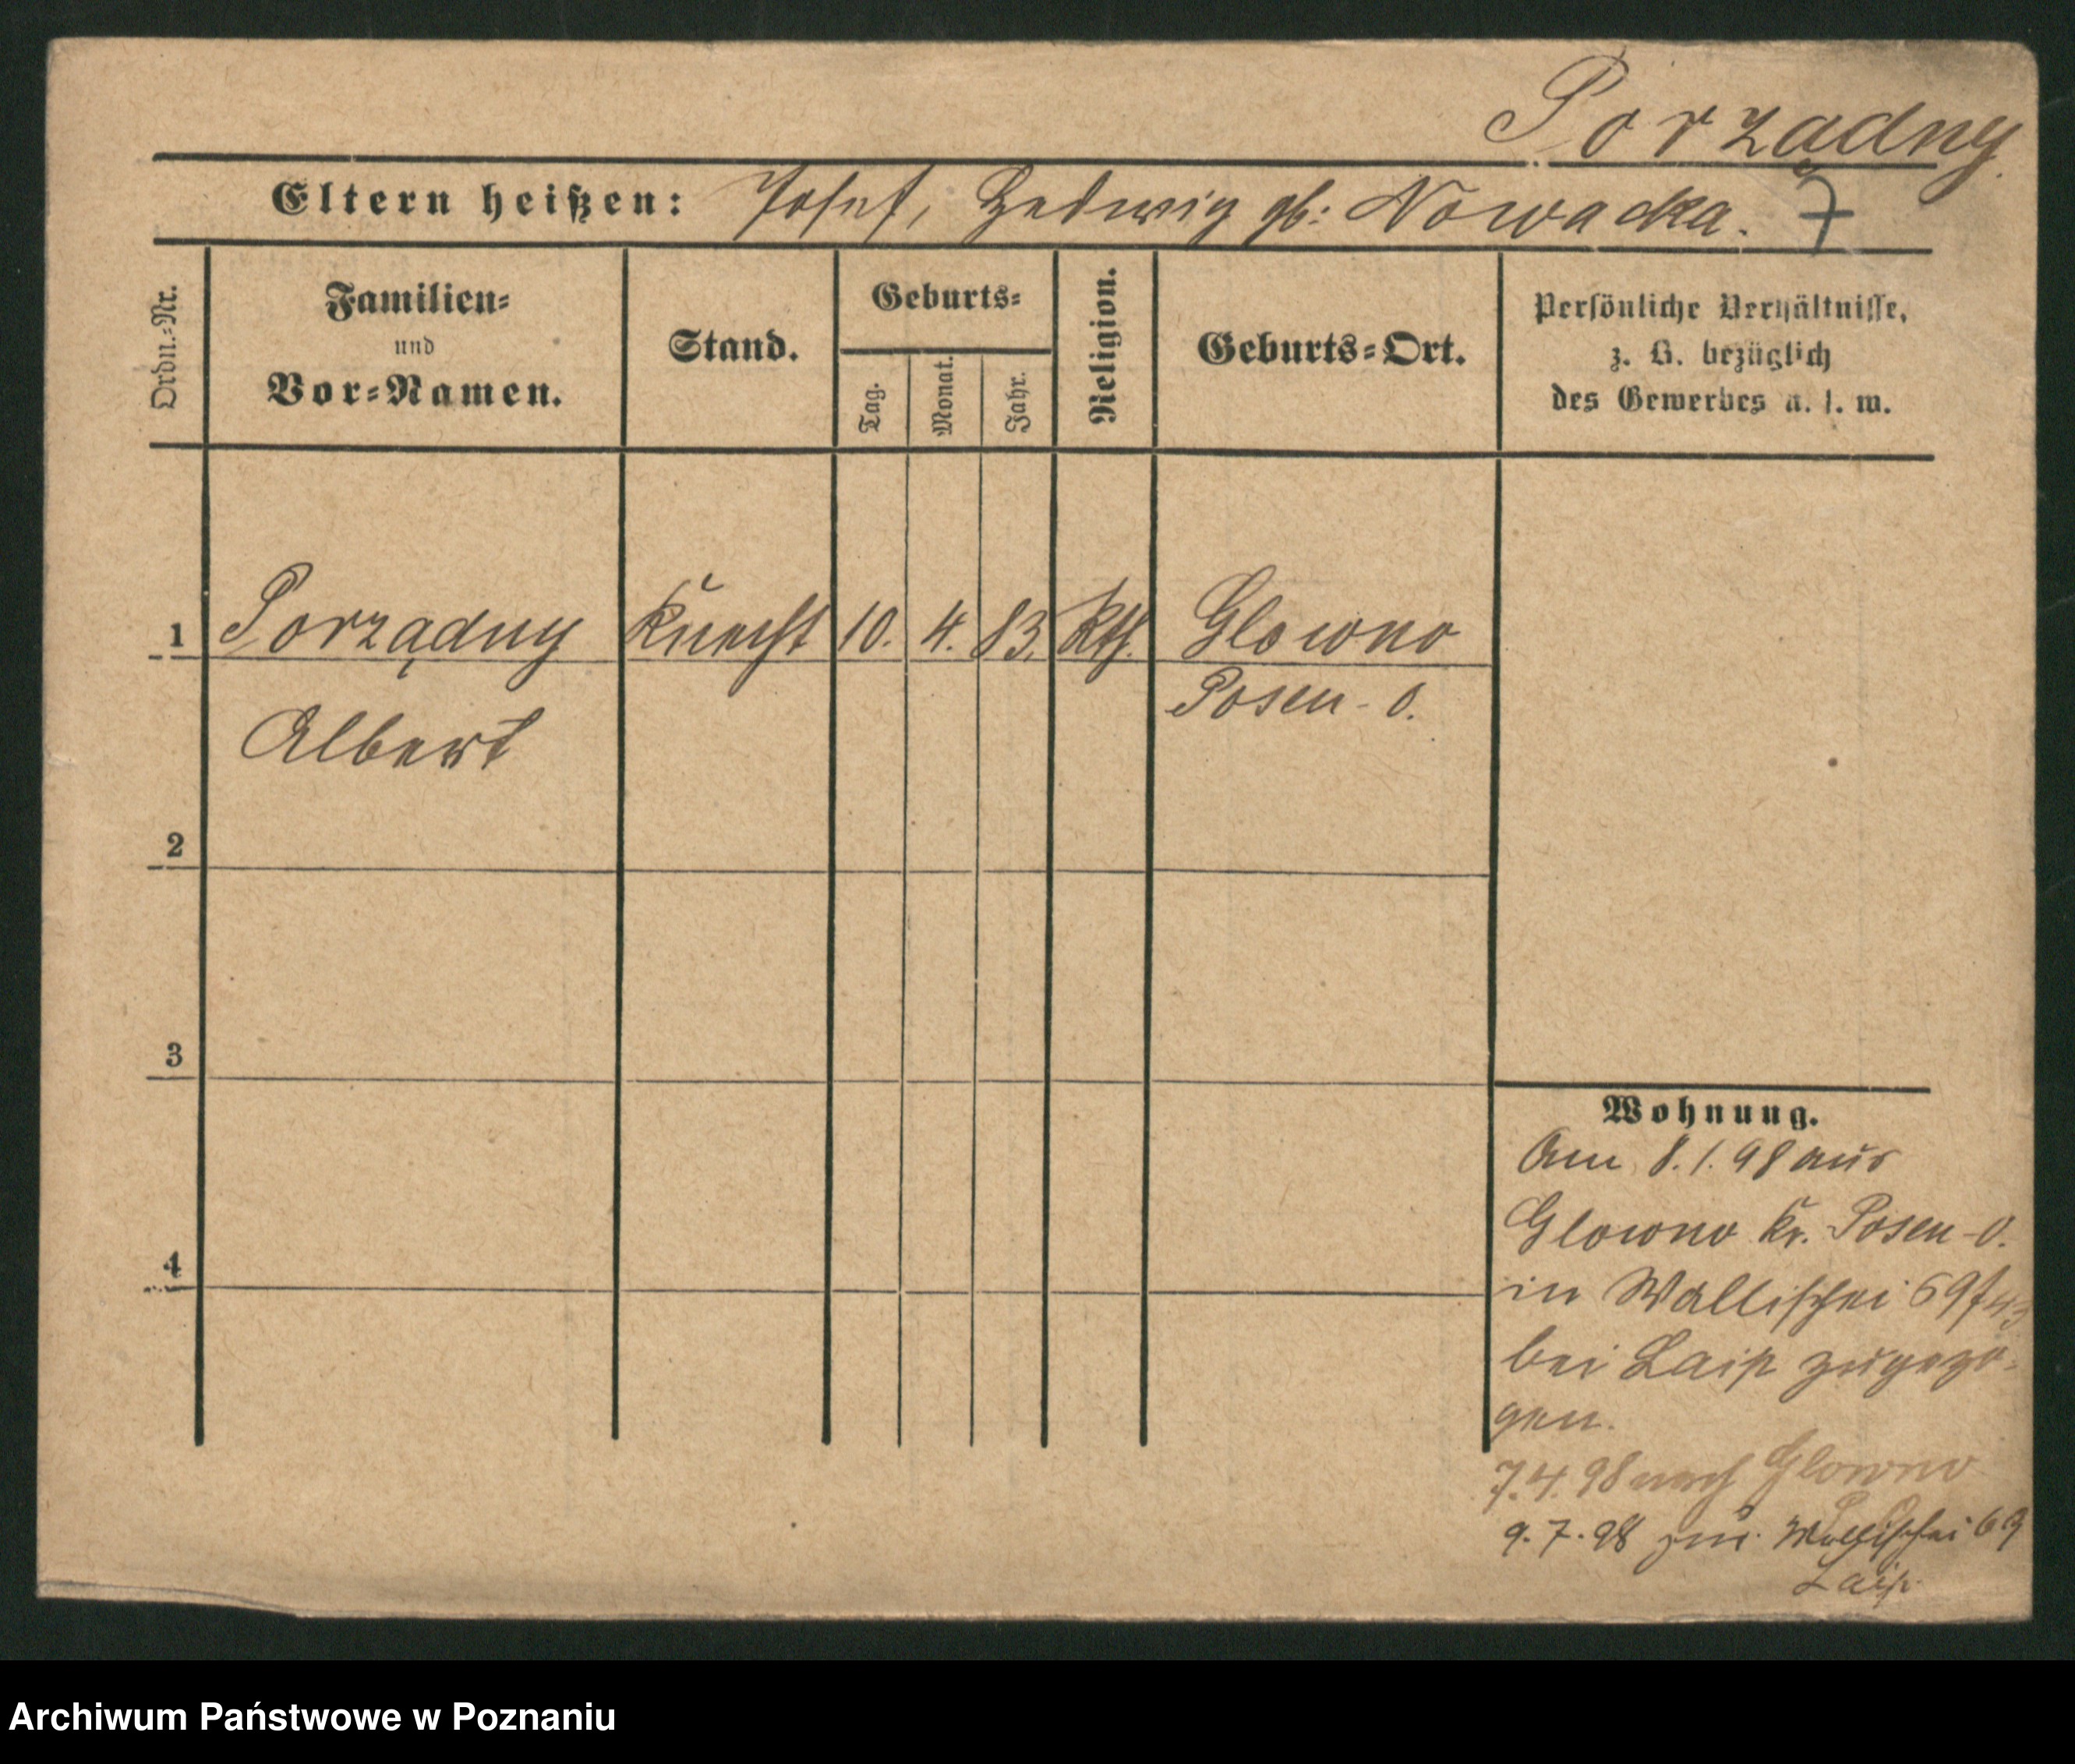 Porządny.
Eltern heißen: Josef, Hedwig gb: Nowacka. 7
Ordn.-Nr.
Familien-
und
Vor-Namen.
Stand.
Geburts-
Tag.
Monat.
Jahr.
Religion.
Geburts-Ort.
Persönliche Verhältnisse,
z. B. bezüglich
des Gewerbes u. s. w.
1 Porządny Knecht 10. 4. 83. Kth. Glowno
Posen-O.
Albert
2
3
4
Wohnung.
Am 8.1.98 aus
Glowno Kr. Posen-O.
in Wallischei 69
bei Laip zugezo-
gen.
7.4.98 nach Glowno
9.7.98 zur. Wallischei 69
Laip
Archiwum Państwowe w Poznaniu